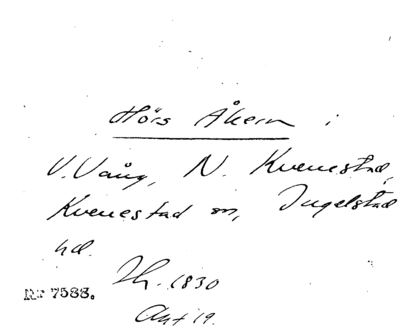 Hörs Åkern i
V. Vång, N. Kvenestad,
Kvenestad sn, Ingelstad
hd.
Th. 1830
Akt 19.
Nr 7588.